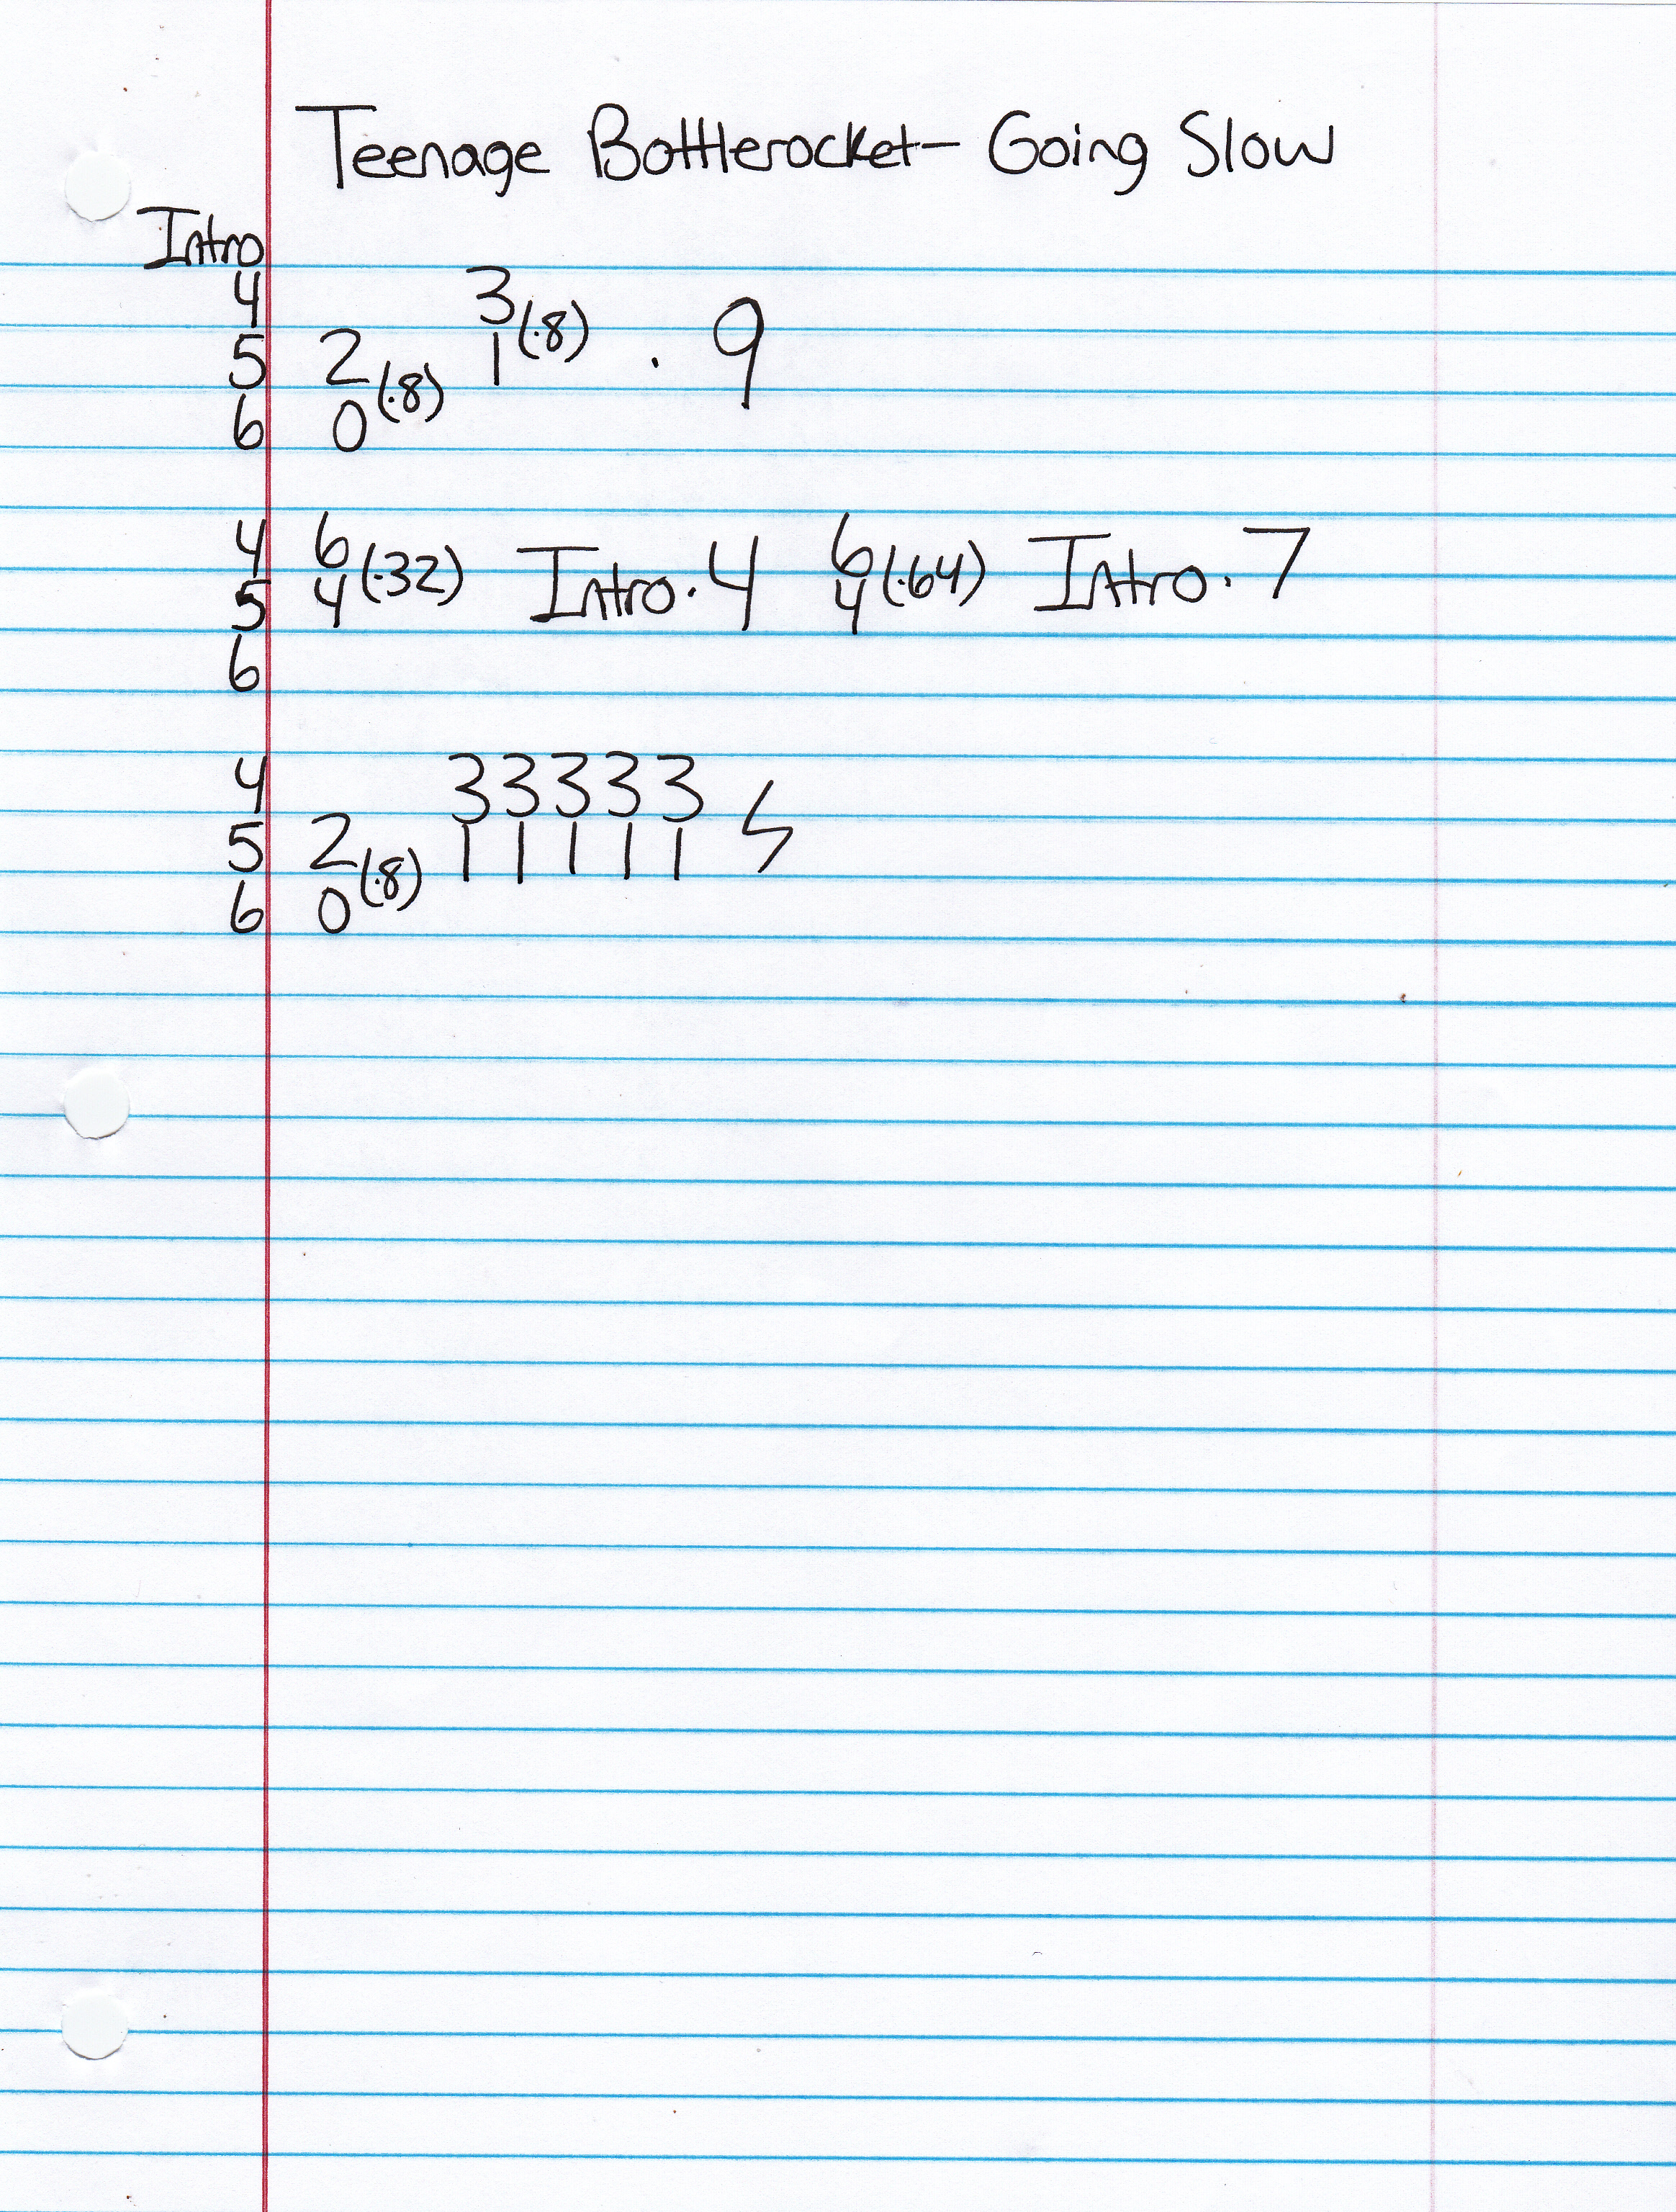 Teenage Bottlerocket - Going Slow
Intro
4 3(·8) · 9
5 2(·8) 1
6 0
4 6(·32) Intro · 4 6(·64) Intro · 7
5 4 4
6
4 3 3 3 3 3
5 2(·8) 1 1 1 1 1
6 0